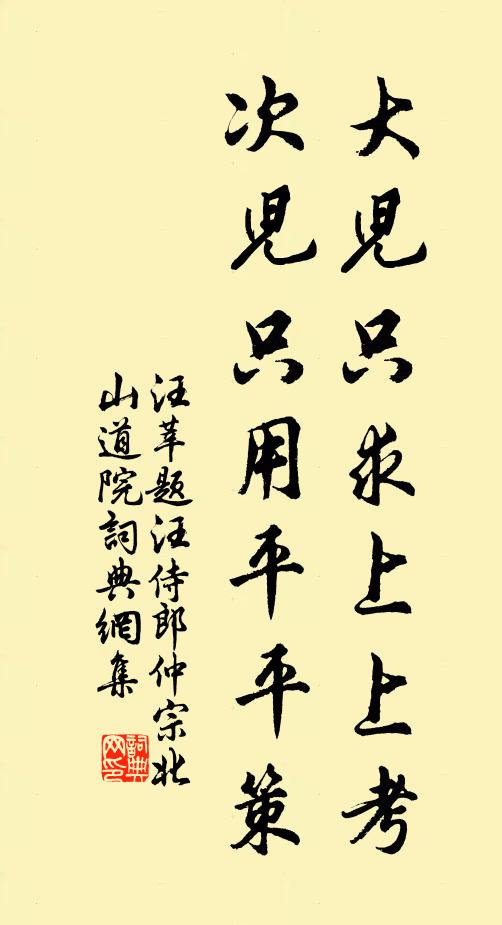 大兒只求上上考
次兒只用平平策
汪莘題汪侍郎仲宗北
山道院詞典網集
詞典
网印